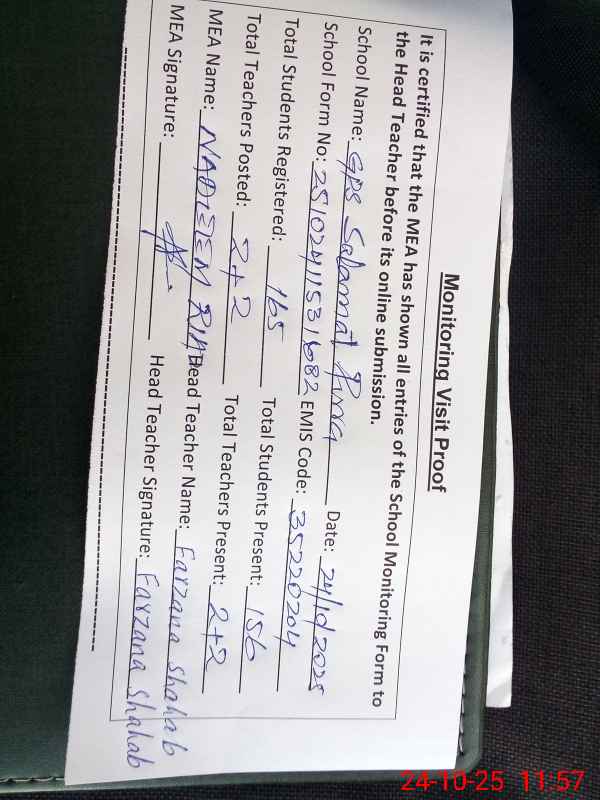 Monitoring Visit Proof
It is certified that the MEA has shown all entries of the School Monitoring Form to
the Head Teacher before its online submission.
School Name: GPS Salamat Pura Date: 24/10/2025
School Form No: 25102411531682 EMIS Code: 35220204
Total Students Registered: 165 Total Students Present: 156
Total Teachers Posted: 2+2 Total Teachers Present: 2+2
MEA Name: Head Teacher Name: Farzana Shahab
MEA Signature: Head Teacher Signature: Farzana Shahab
24-10-25 11:57